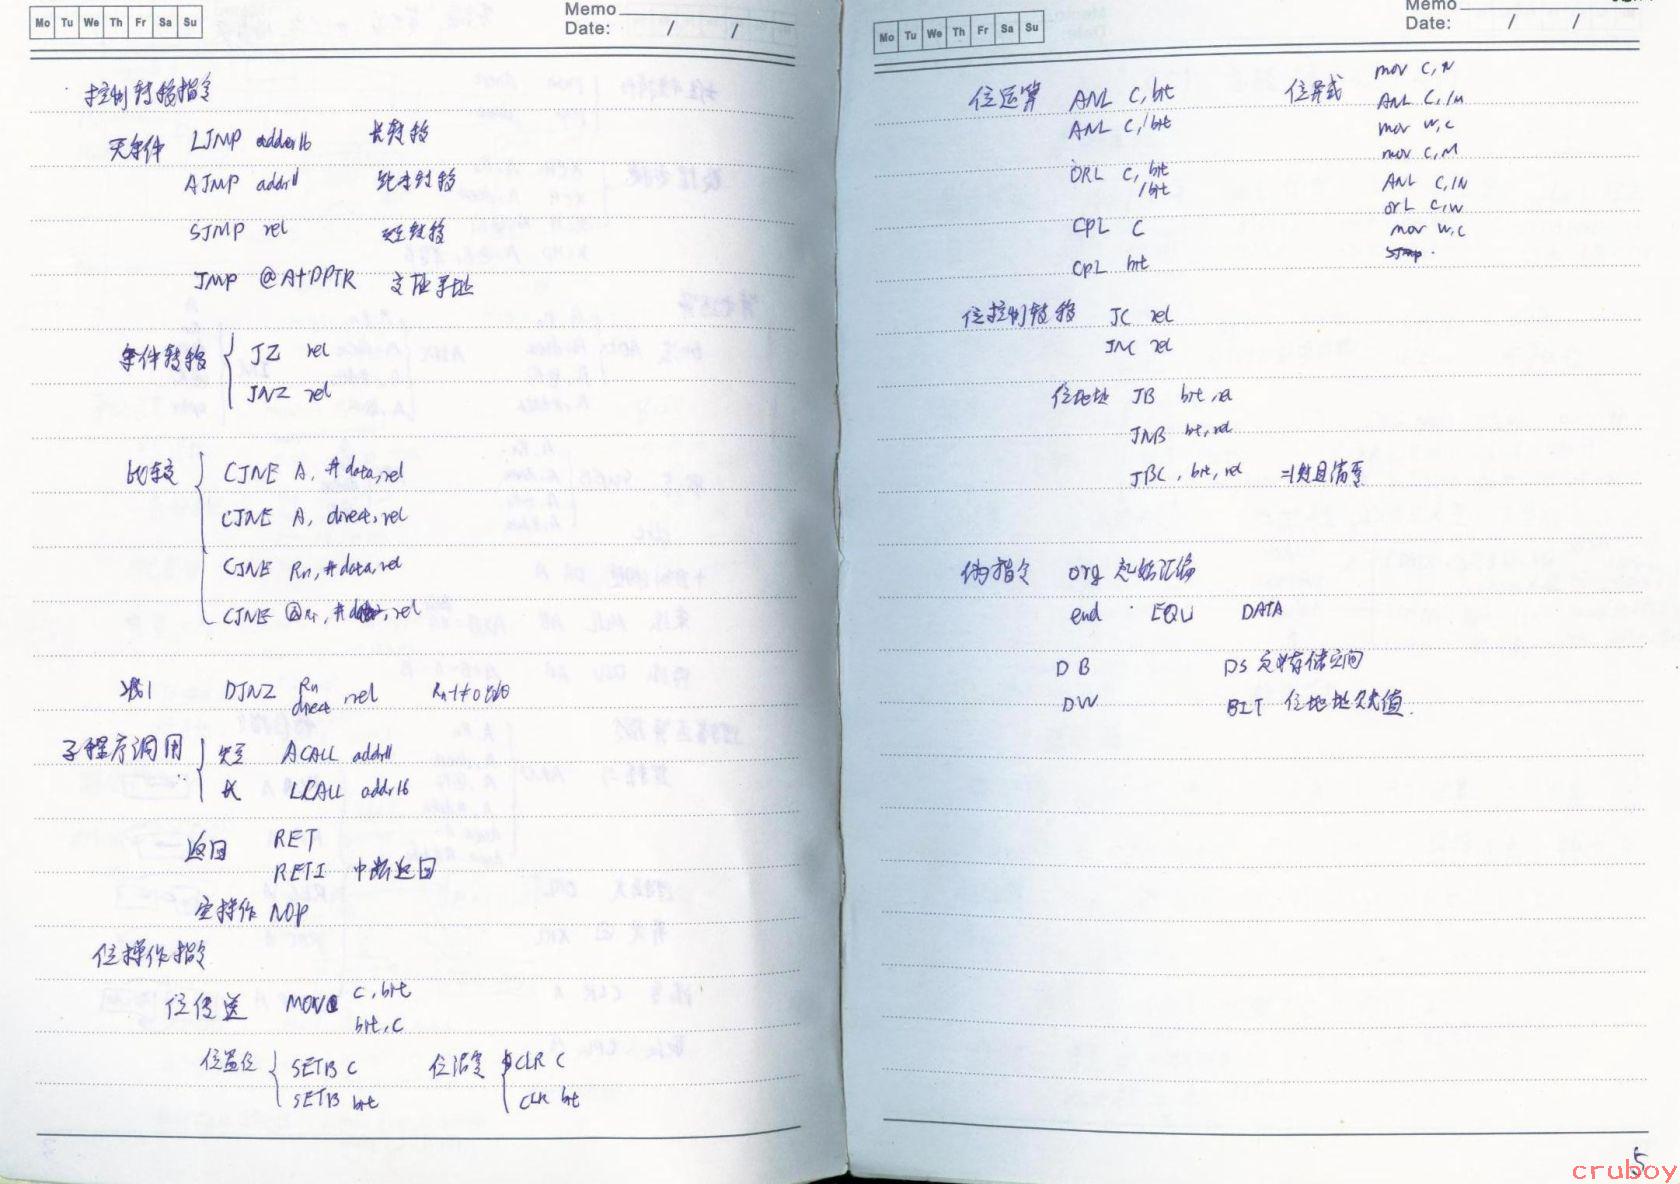 Mo Tu We Th Fr Sa Su
Memo
Date: / /
控制转移指令
无条件 LJMP addr16 长转移
AJMP addr11 绝对转移
SJMP rel 短转移
JMP @A+DPTR 变址寻址
条件转移 { JZ rel
JNZ rel
比较 { CJNE A, #data,rel
CJNE A, direct,rel
CJNE Rn, #data,rel
CJNE @Ri, #data,rel
减1 DJNZ Rn rel
direct
子程序调用 { ACALL addr11
长 LCALL addr16
返回 RET
RETI 中断返回
空操作 NOP
位操作指令
位传送 MOV C,bit
bit,C
位置位 { SETB C
SETB bit
位清零 { CLR C
CLR bit
Mo Tu We Th Fr Sa Su
Memo
Date: / /
位运算 ANL C,bit
ANL C,/bit
ORL C,bit
/bit
CPL C
CPL bit
位异或 mov C,N
ANL C,/M
mov W,C
mov C,M
ANL C,/N
orL C,W
mov W,C
位控制转移 JC rel
JNC rel
位地址 JB bit,rel
JNB bit,rel
JBC,bit,rel =1转且清零
伪指令 org 起始汇编
end EQU DATA
DB DS 定义存储空间
DW BIT 位地址赋值.
5
cruboy